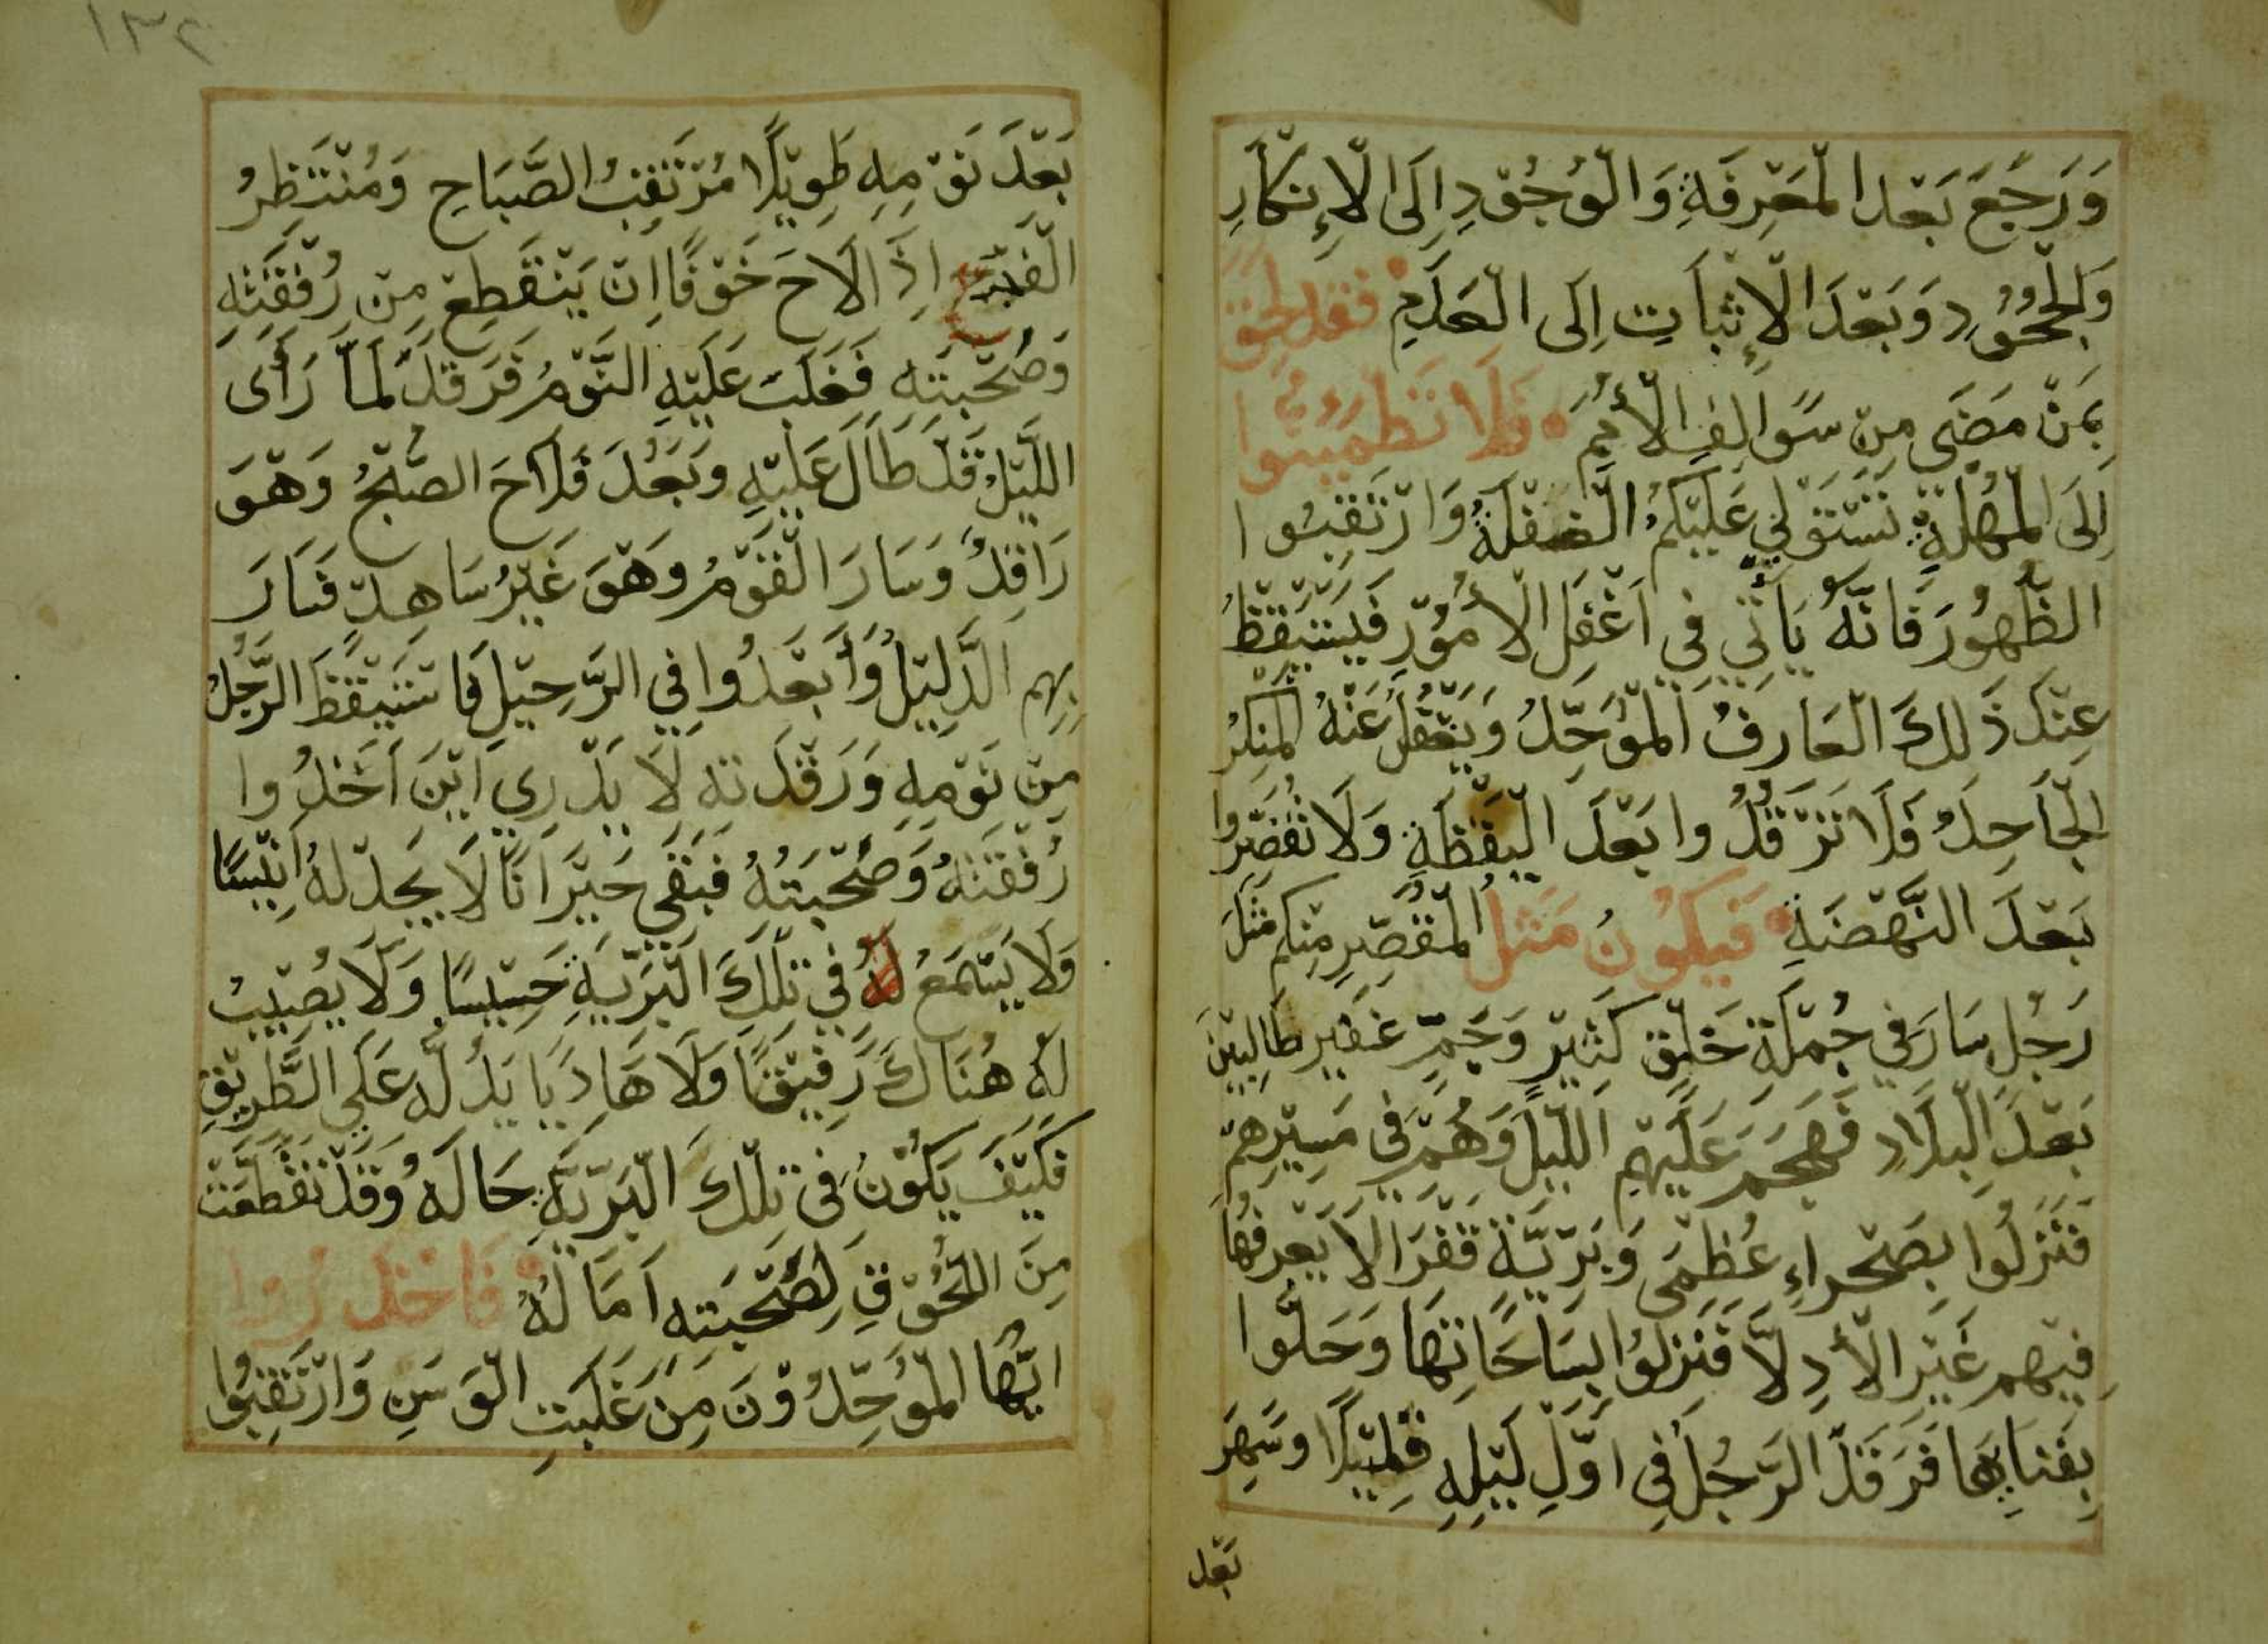 وَرَجَعَ بَعْدَ الْمَعْرِفَةِ وَالْوُجُوْدِ اِلَى الْاِنْكَارِ
وَالْجُحُوْدِ وَبَعْدَ الْاِثْبَاتِ اِلَى الْعَدَمِ فقد لحق
بِمَنْ مَضَى مِنْ سَوَالِفِ الْأُمَمِ فَلَا تَطْمَئِنُّوا
اِلَى الْمُهْلَةِ تَسْتَوْلِي عَلَيْكُمُ الْغَفْلَةُ وَارْتَقِبُوا
الظُّهُوْرَ فَاِنَّهُ يَأْتِي فِي اَغْفَلِ الْأُمُوْرِ فَيَسْتَيْقِظُ
عِنْدَ ذَلِكَ الْعَارِفُ الْمُوَحِّدُ وَيَغْفَلُ عَنْهُ الْمُنْكِرُ
الْجَاحِدُ فَلَا تَرْقُدُوا بَعْدَ الْيَقْظَةِ وَلَا تُقَصِّرُوا
بَعْدَ النَّهْضَةِ فَيَكُوْنُ مَثَلُ الْمُقَصِّرِ مِنْكُمْ مَثَلَ
رَجُلٍ سَارَ فِي جُمْلَةِ خَلْقٍ كَثِيْرٍ وَجَمٍّ غَفِيْرٍ طَالِبِيْنَ
بَعْدَ الْبِلَادِ فَهَجَمَ عَلَيْهِمِ اللَّيْلُ وَهُمْ فِي مَسِيْرِهِمْ
فَنَزَلُوا بِصَحْرَاءِ عُظْمَى وَبَرِّيَّةٍ قَفْرَا لَا يَعْرِفُهَا
فِيْهِمْ غَيْرَ الْأَدِلَّا فَنَزَلُوا بِسَاحَاتِهَا وَحَلُّوا
بِفَنَايِهَا فَرَقَدَ الرَّجُلُ فِي اَوَّلِ لَيْلِهِ قَلِيْلًا وَسَهِرَ
بَعْد
١٣٢
بَعْدَ نَوْمِهِ طَوِيْلًا مُرْتَقِبُ الصَّبَاحِ وَمُنْتَظِرُ
الْفَجْرِ اِذَا لَاحَ خَوْفًا اَنْ يَنْقَطِعْ مِنْ رُفْقَتِهِ
وَصُحْبَتِهِ فَغَلَبَ عَلَيْهِ النَّوْمُ فَرَقَدَ لَمَّا رَأَى
اللَّيْلَ قَدْ طَالَ عَلَيْهِ وَبَعُدَ فَلَاحَ الصُّبْحُ وَهْوَ
رَاقِدٌ وَسَارَ الْقَوْمُ وَهْوَ غَيْرُ سَاهِدْ فَسَارَ
بِهِمِ الدَّلِيْلُ وَأَبْعَدُوا فِي الرَّحِيْلِ فَاسْتَيْقَظَ الرَّجُلُ
مِنْ نَوْمِهِ وَرَقْدَتِهِ لَا يَدْرِي اَيْنَ اَخَذُوا
رُفْقَتَهُ وَصُحْبَتُهُ فَبَقِي حَيْرَانًا لَا يَجِدْ لَهُ اَنِيْسًا
وَلَا يَسْمَعُ لَهُ فِي تِلْكَ الْبَرِّيَّةِ حَسِيْسًا وَلَا يُصِيْبُ
لَهُ هُنَاكَ رَفِيْقًا وَلَا هَادِيًا يَدُلُّهُ عَلَى الطَّرِيْقِ
فَكَيْفَ يَكُوْنُ فِي تِلْكَ الْبَرِّيَّةِ حَالَهُ وَقَدْ تَقَطَّعَتْ
مِنَ اللُّحُوْقِ لِصُحْبَتِهِ اَمَالُهُ فَاحْذَرُوا
اَيُّهَا الْمُوَحِّدُوْنَ مِنْ غَلَبَتِ الْوَسَنِ وَارْتَقِبُوا